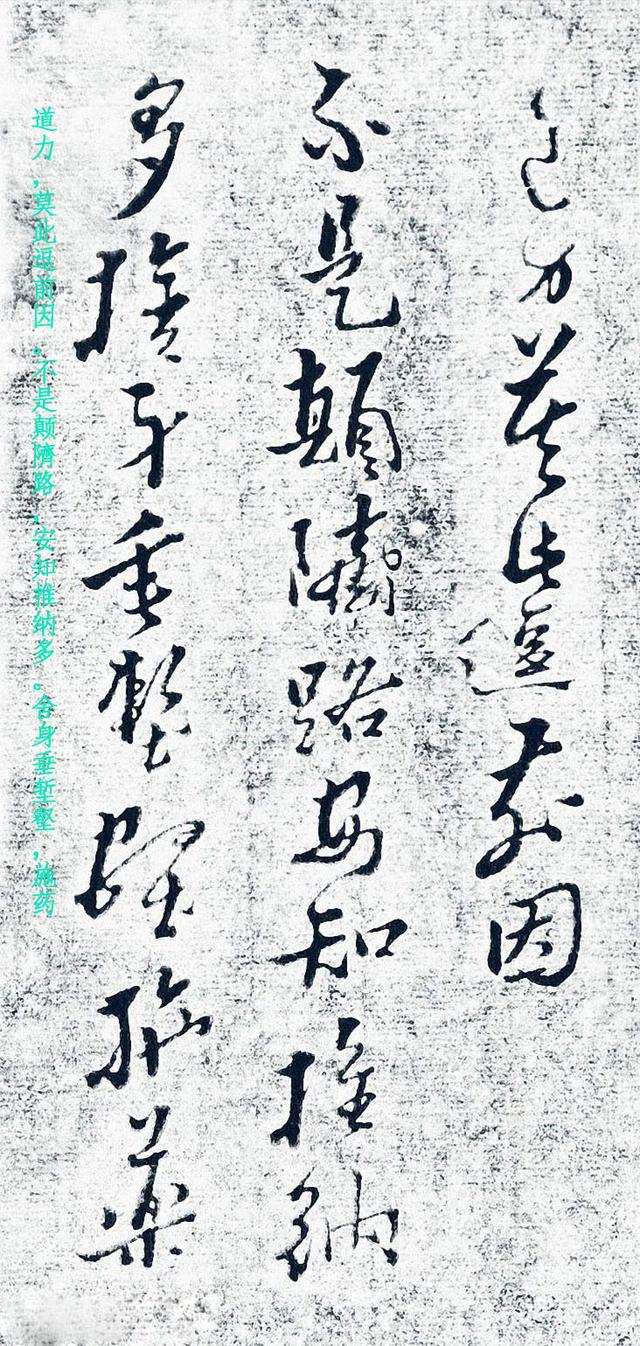 道力莫此逗前因
不是顛隮路安知推納
多捨身垂塹壑施藥
道力，莫此逗前因。不是颠隮路，安知推纳多。舍身垂堑壑，施药